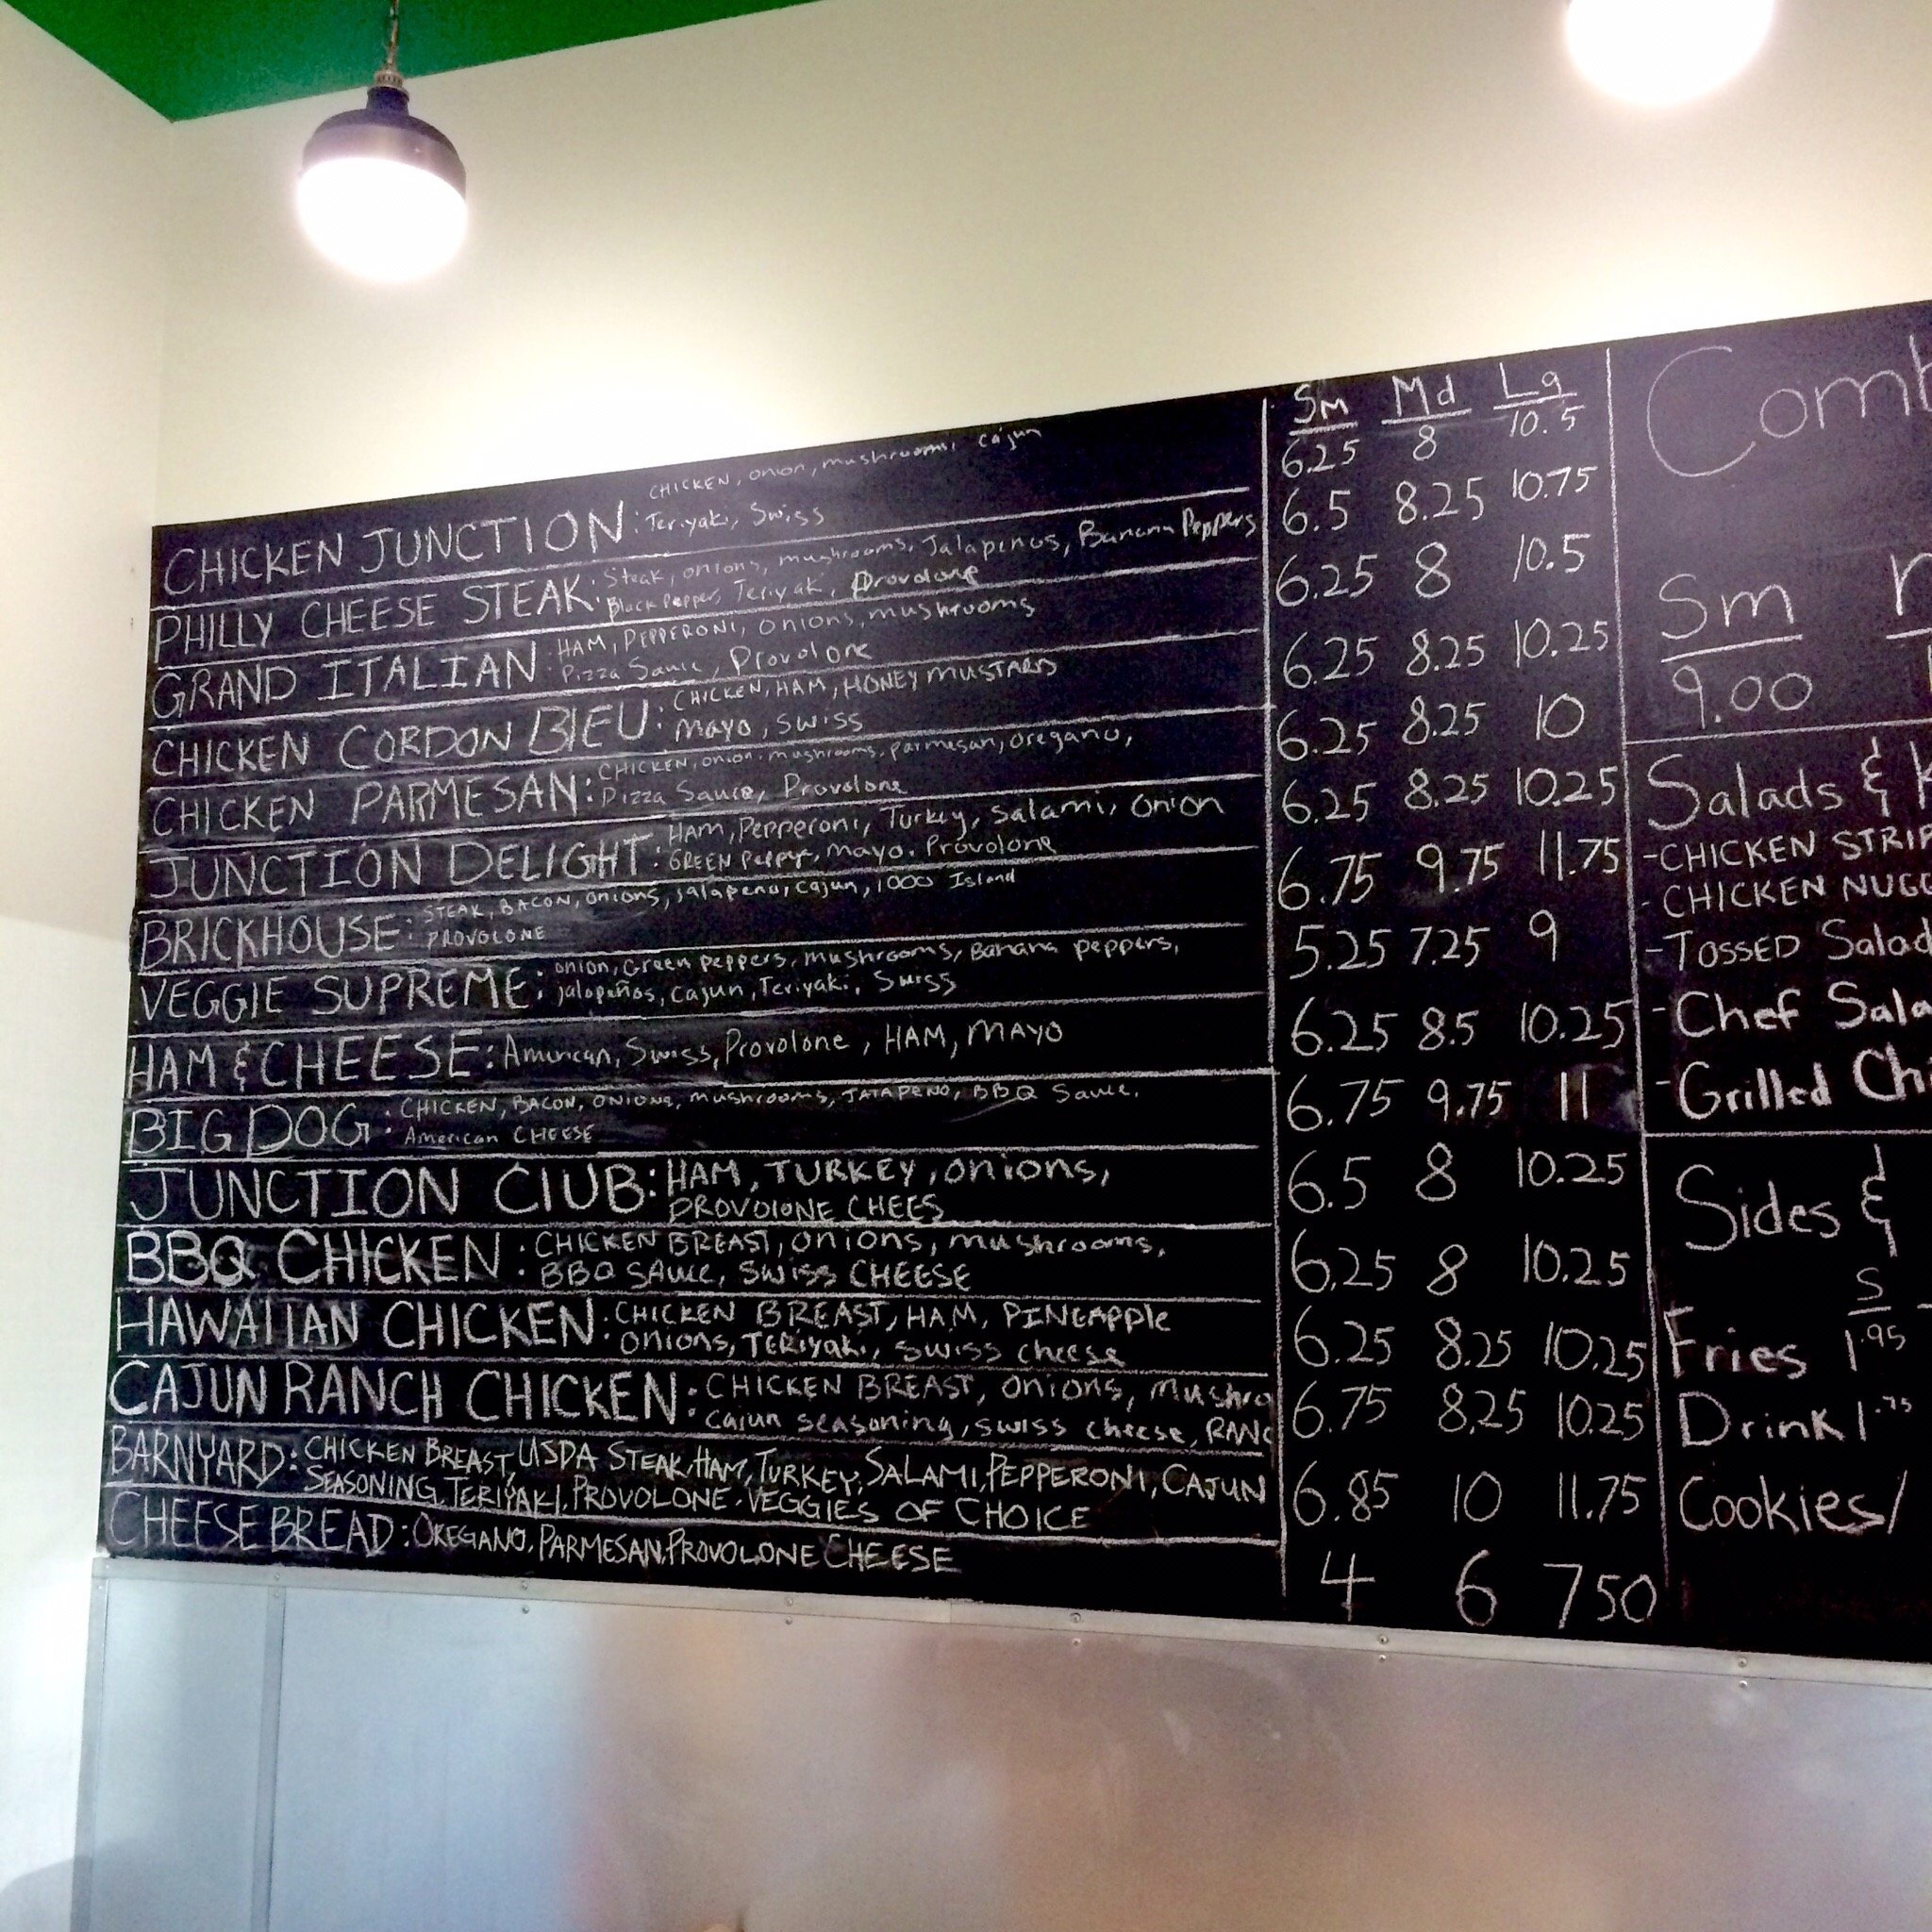 Sm Md Lg
CHICKEN, onion, mushrooms, cajun
CHICKEN JUNCTION: Teriyaki, Swiss
6.25 8 10.5
PHILLY CHEESE STEAK: Steak, onions, mushrooms, Jalapenos, Banana Peppers
Black Pepper, Teriyaki, Provolone
6.5 8.25 10.75
GRAND ITALIAN: HAM, PEPPERONI, onions, mushrooms
Pizza Sauce, Provolone
6.25 8 10.5
CHICKEN CORDON BlEU: CHICKEN, HAM, HONEY MUSTARD
Mayo, Swiss
6.25 8.25 10.25
CHICKEN PARMESAN: CHICKEN, onion, mushrooms, parmesan, oregano,
Pizza Sauce, Provolone
6.25 8.25 10
JUNCTION DELIGHT: HAM, Pepperoni, Turkey, Salami, onion
GREEN Pepper, Mayo, Provolone
6.25 8.25 10.25
BRICKHOUSE: STEAK, BACON, onions, jalapeno, cajun, 1000 Island
PROVOLONE
6.75 9.75 11.75
VEGGIE SUPREME: onion, Green peppers, mushrooms, Banana peppers,
jalapeños, cajun, Teriyaki, Swiss
5.25 7.25 9
HAM & CHEESE: American, Swiss, Provolone, HAM, MAYO
6.25 8.5 10.25
BIG DOG: CHICKEN, BACON, ONIONS, mushrooms, JATAPENO, BBQ Sauce,
American CHEESE
6.75 9.75 11
JUNCTION ClUB: HAM, TURKEY, onions,
PROVOlONE CHEES
6.5 8 10.25
BBQ CHICKEN: CHICKEN BREAST, onions, mushrooms,
BBQ SAuce, SWiss CHEESE
6.25 8 10.25
HAWAIIAN CHICKEN: CHICKEN BREAST, HAM, PINEApple
onions, TERiyaki, swiss cheese
6.25 8.25 10.25
CAJUN RANCH CHICKEN: CHICKEN BREAST, onions, mushro
cajun seasoning, swiss cheese, RANC
6.75 8.25 10.25
BARNYARD: CHICKEN BREAST, USDA STEAK, HAM, TURKEY, SALAMI, PEPPERONI, CAJUN
SEASONING, TERIYAKI, PROVOLONE, VEGGIES OF CHOICE
6.85 10 11.75
CHEESE BREAD: OREGANO, PARMESAN, PROVOLONE CHEESE
4 6 750
Comb
Sm
9.00
Salads & K
-CHICKEN STRIP
-CHICKEN NUGG
-TOSSED Salad
-Chef Sala
-Grilled Chi
Sides &
S
Fries 1.95
Drink 1.75
Cookies/